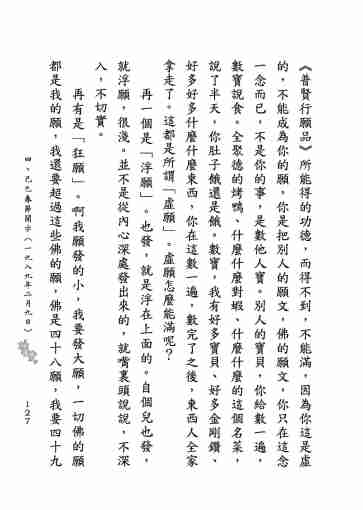 《普賢行願品》所能得的功德,而得不到,不能滿,因為你這是虛
的,不能成為你的願。你是把別人的願文,佛的願文,你只在這念
一念而已,不是你的事,是數他人寶。別人的寶貝,你給數一遍,
數寶說食。全聚德的烤鴨、什麼什麼對蝦、什麼什麼的這個名菜,
說了半天,你肚子餓還是餓。數寶,我有好多寶貝、好多金剛鑽、
好多好多什麼什麼東西,你在這數一遍,數完了之後,東西人全家
拿走了。這都是所謂「虛願」。虛願怎麼能滿呢?
再一個是「浮願」。也發,就是浮在上面的。自個兒也發,
就浮願,很淺。並不是從內心深處發出來的,就嘴裏頭說說,不深
入,不切實。
再有是「狂願」。啊我願發的小,我要發大願,一切佛的願
都是我的願,我還要超過這些佛的願,佛是四十八願,我要四十九
四、己巳春節開示(一九八九年二月九日)
127